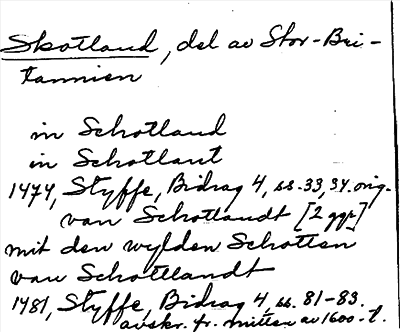 Skotland, del av Stor-Bri-
tannien
in Schotland
in Schotlant
1474, Styffe, Bidrag 4, ss. 33, 34. orig.
van Schotlandt [2 ggr]
mit den wylden Schotten
van Schottlandt
1481, Styffe, Bidrag 4, ss. 81-83.
avskr. fr. mitten av 1600-t.